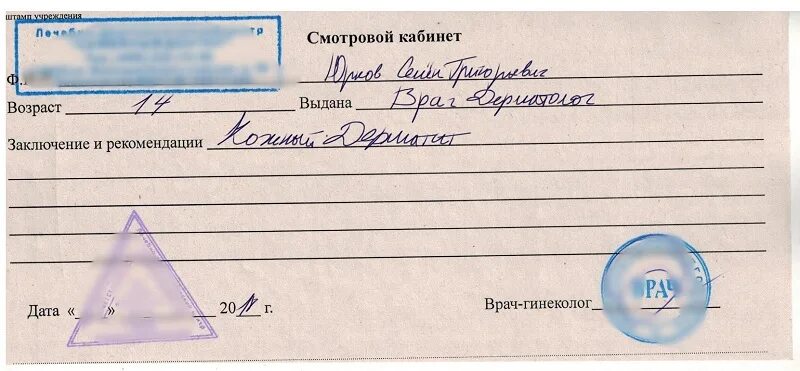 штамп учреждения
Смотровой кабинет
Ф. Юрков Семён Григорьевич
Возраст 14 Выдана Врач Дерматолог
Заключение и рекомендации Кожный Дерматит
Дата « » 20 г.
Врач-гинеколог
ВРАЧ